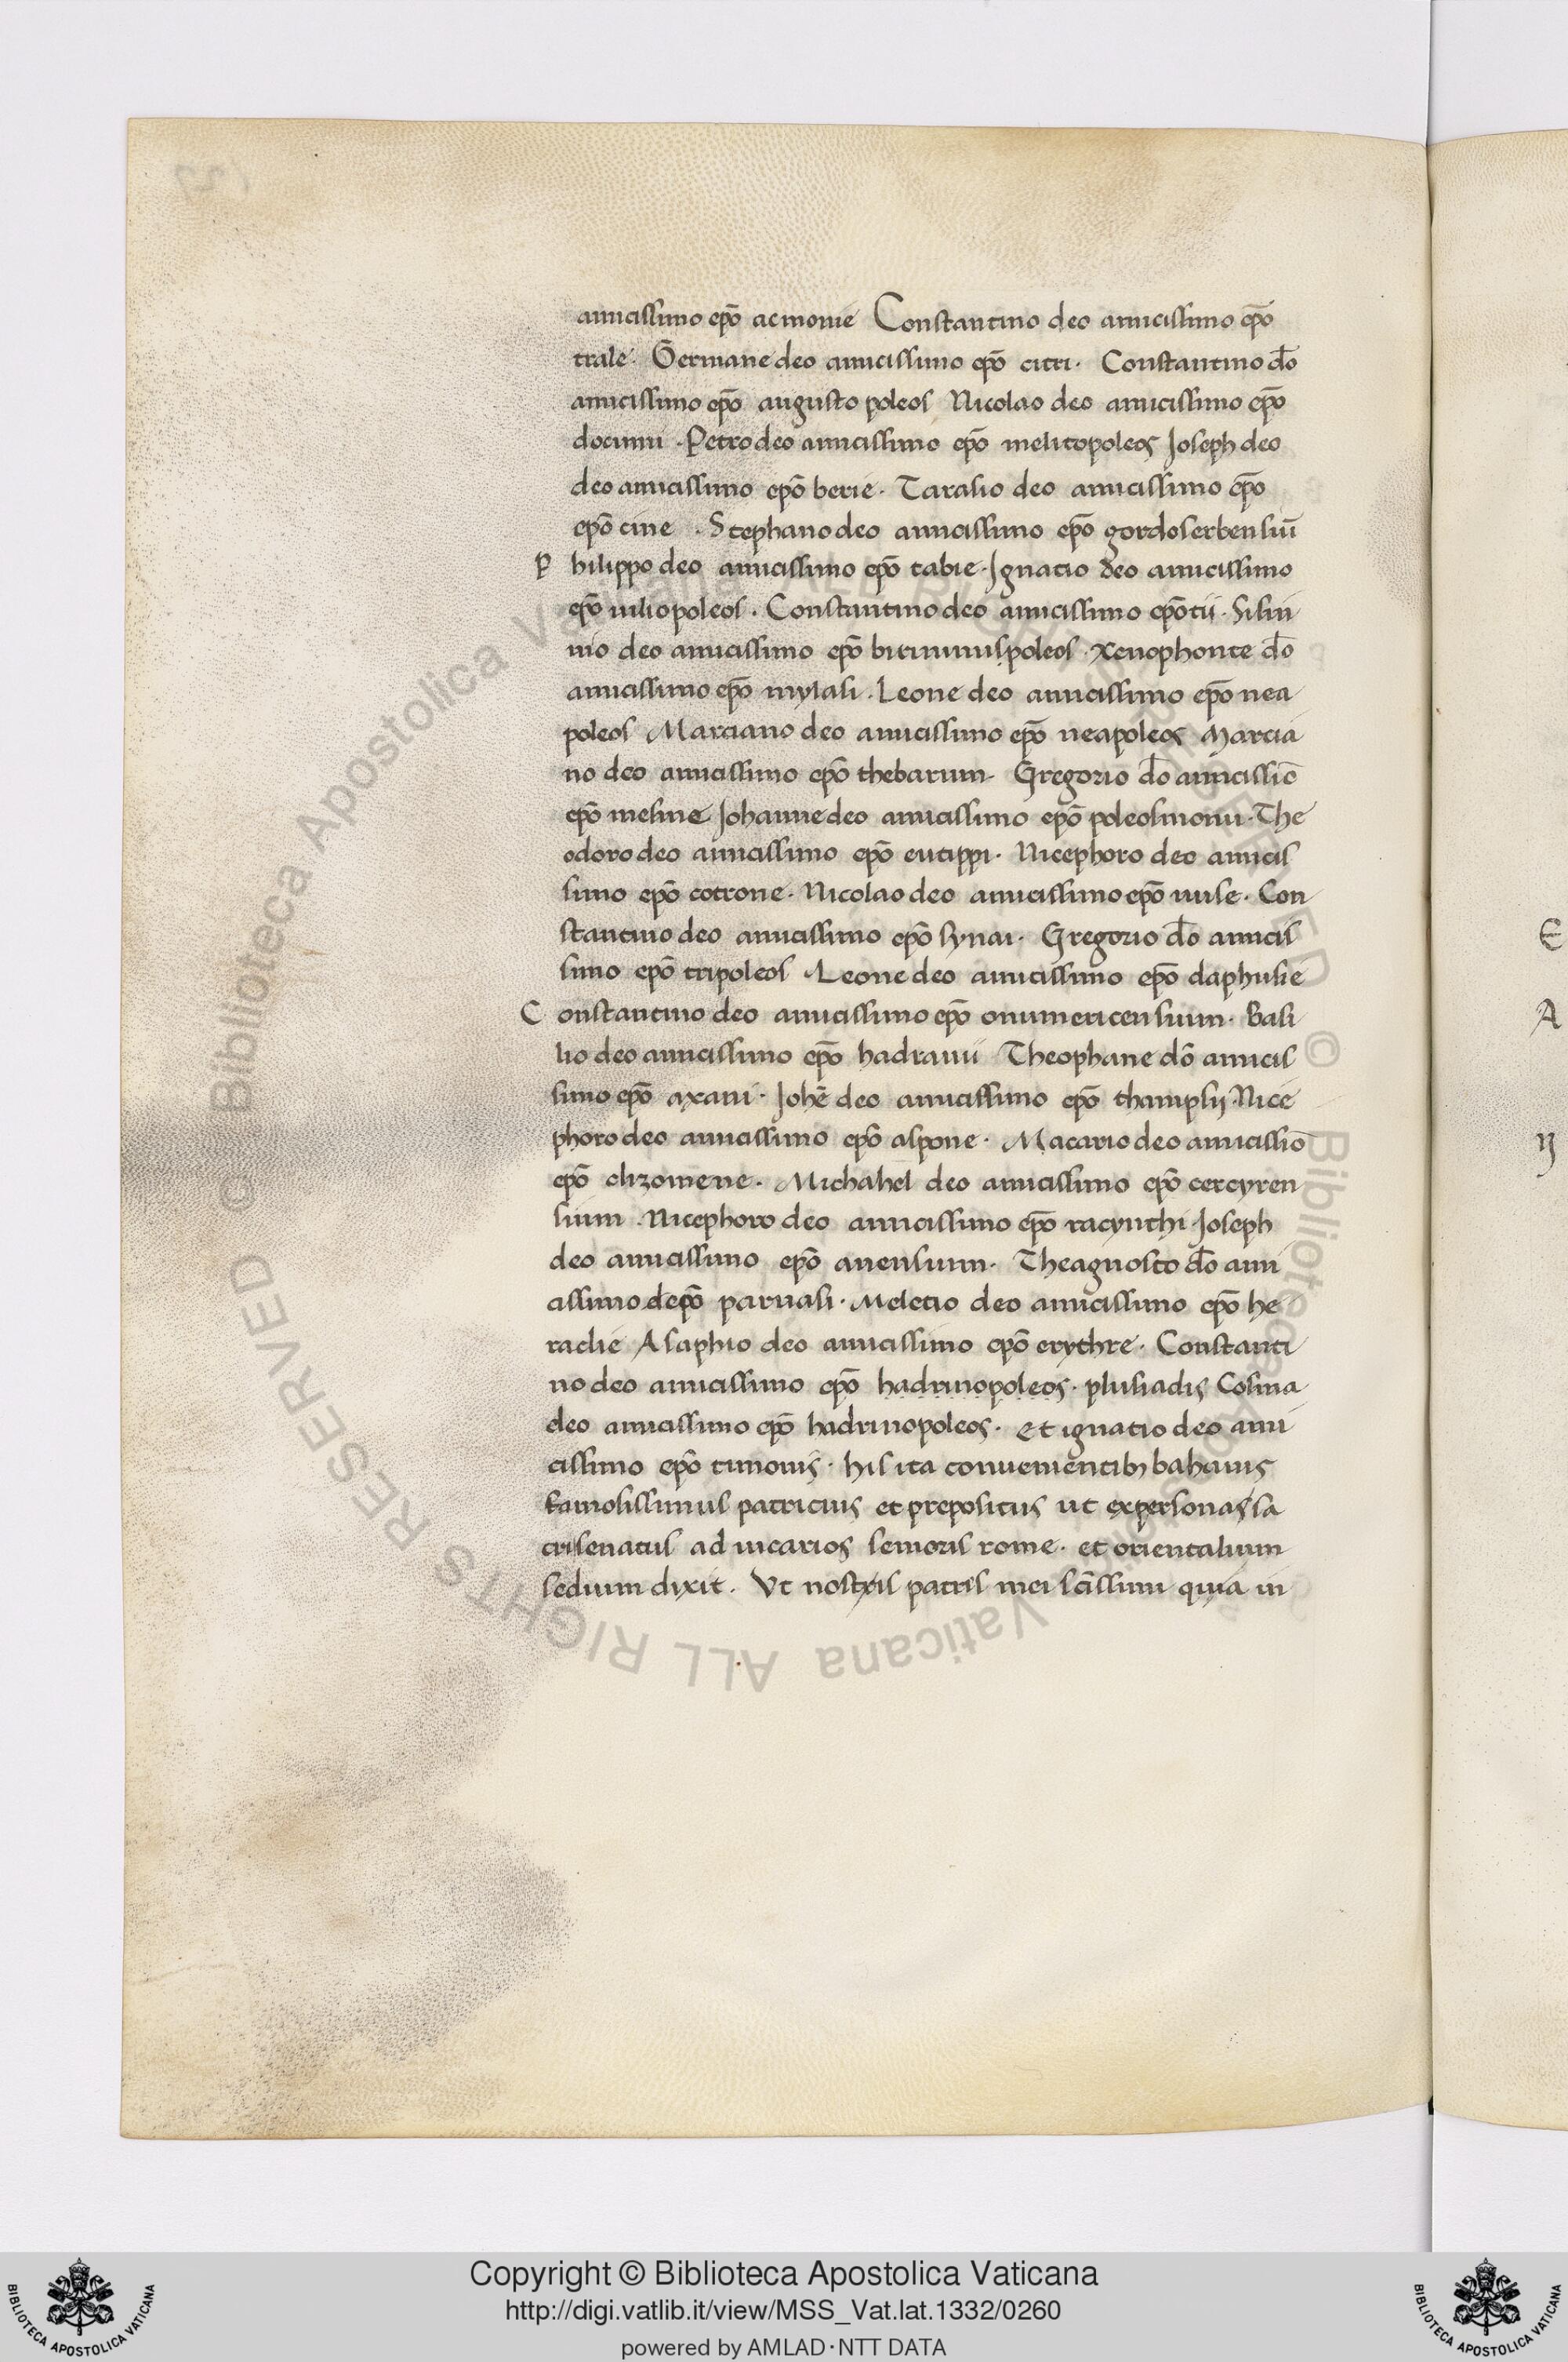 amicissimo ep̄o acmonie Constantino deo amicissimo ep̄o
trale. Germane deo amicissimo ep̄o citri. Constantino do̅
amicissimo ep̄o augusto poleos Nicolao deo amicissimo ep̄o
docimii. Petro deo amicissimo ep̄o melitopoleos Joseph deo
deo amicissimo ep̄o berie. Tarasio deo amicissimo ep̄o
ep̄o cine. Stephano deo amicissimo ep̄o gordoserbensiū
Philippo deo amicissimo ep̄o tabie. Ignatio deo amicissimo
ep̄o iuliopoleos. Constantino deo amicissimo ep̄o tii. Sisin
nio deo amicissimo ep̄o bitinimispoleos. Xenophonte do̅
amicissimo ep̄o mylasi. Leone deo amicissimo ep̄o nea
poleos Marciano deo amicissimo ep̄o neapoleos Marcia
no deo amicissimo ep̄o thebarum. Gregorio do̅ amicissio̅
ep̄o mesine Johanne deo amicissimo ep̄o poleosmonii. The
odoro deo amicissimo ep̄o eutippi. Nicephoro deo amicis
simo ep̄o cotrone. Nicolao deo amicissimo ep̄o nuse. Con
stantino deo amicissimo ep̄o synai. Gregorio do̅ amicis
simo ep̄o tripoleos. Leone deo amicissimo ep̄o daphusie
Constantino deo amicissimo ep̄o onumericensium. Basi
lio deo amicissimo ep̄o hadranii Theophane do̅ amicis
simo ep̄o axani. Johe̅ deo amicissimo ep̄o thampsii. Nice
phoro deo amicissimo ep̄o aspone. Macario deo amicissio̅
ep̄o clizomene. Michahel deo amicissimo ep̄o cercyren
sium. Nicephoro deo amicissimo ep̄o racynthi. Joseph
deo amicissimo ep̄o anensium. Theagnosto do̅ ami
cissimo deep̄o parnasi. Meletio deo amicissimo ep̄o he
raclie Asaphio deo amicissimo ep̄o erythre. Constanti
no deo amicissimo ep̄o hadrinopoleos. plusiadis Cosma
deo amicissimo ep̄o hadrinopoleos. et ignatio deo ami
cissimo ep̄o timonis. his ita convenientib; bahanis
famosissimus patricius et prepositus ut ex personas sa
cri senatus ad vicarios senioris rome. et orientalium
sedium dixit. Ut nostris patris mei sc̅issimi quia in
E
A
N
Copyright © Biblioteca Apostolica Vaticana
http://digi.vatlib.it/view/MSS_Vat.lat.1332/0260
powered by AMLAD·NTT DATA
BIBLIOTECA APOSTOLICA VATICANA
BIBLIOTECA APOSTOLICA VATICANA
© Biblioteca Apostolica Vaticana ALL RIGHTS RESERVED
© Biblioteca Apostolica Vaticana ALL RIGHTS RESERVED